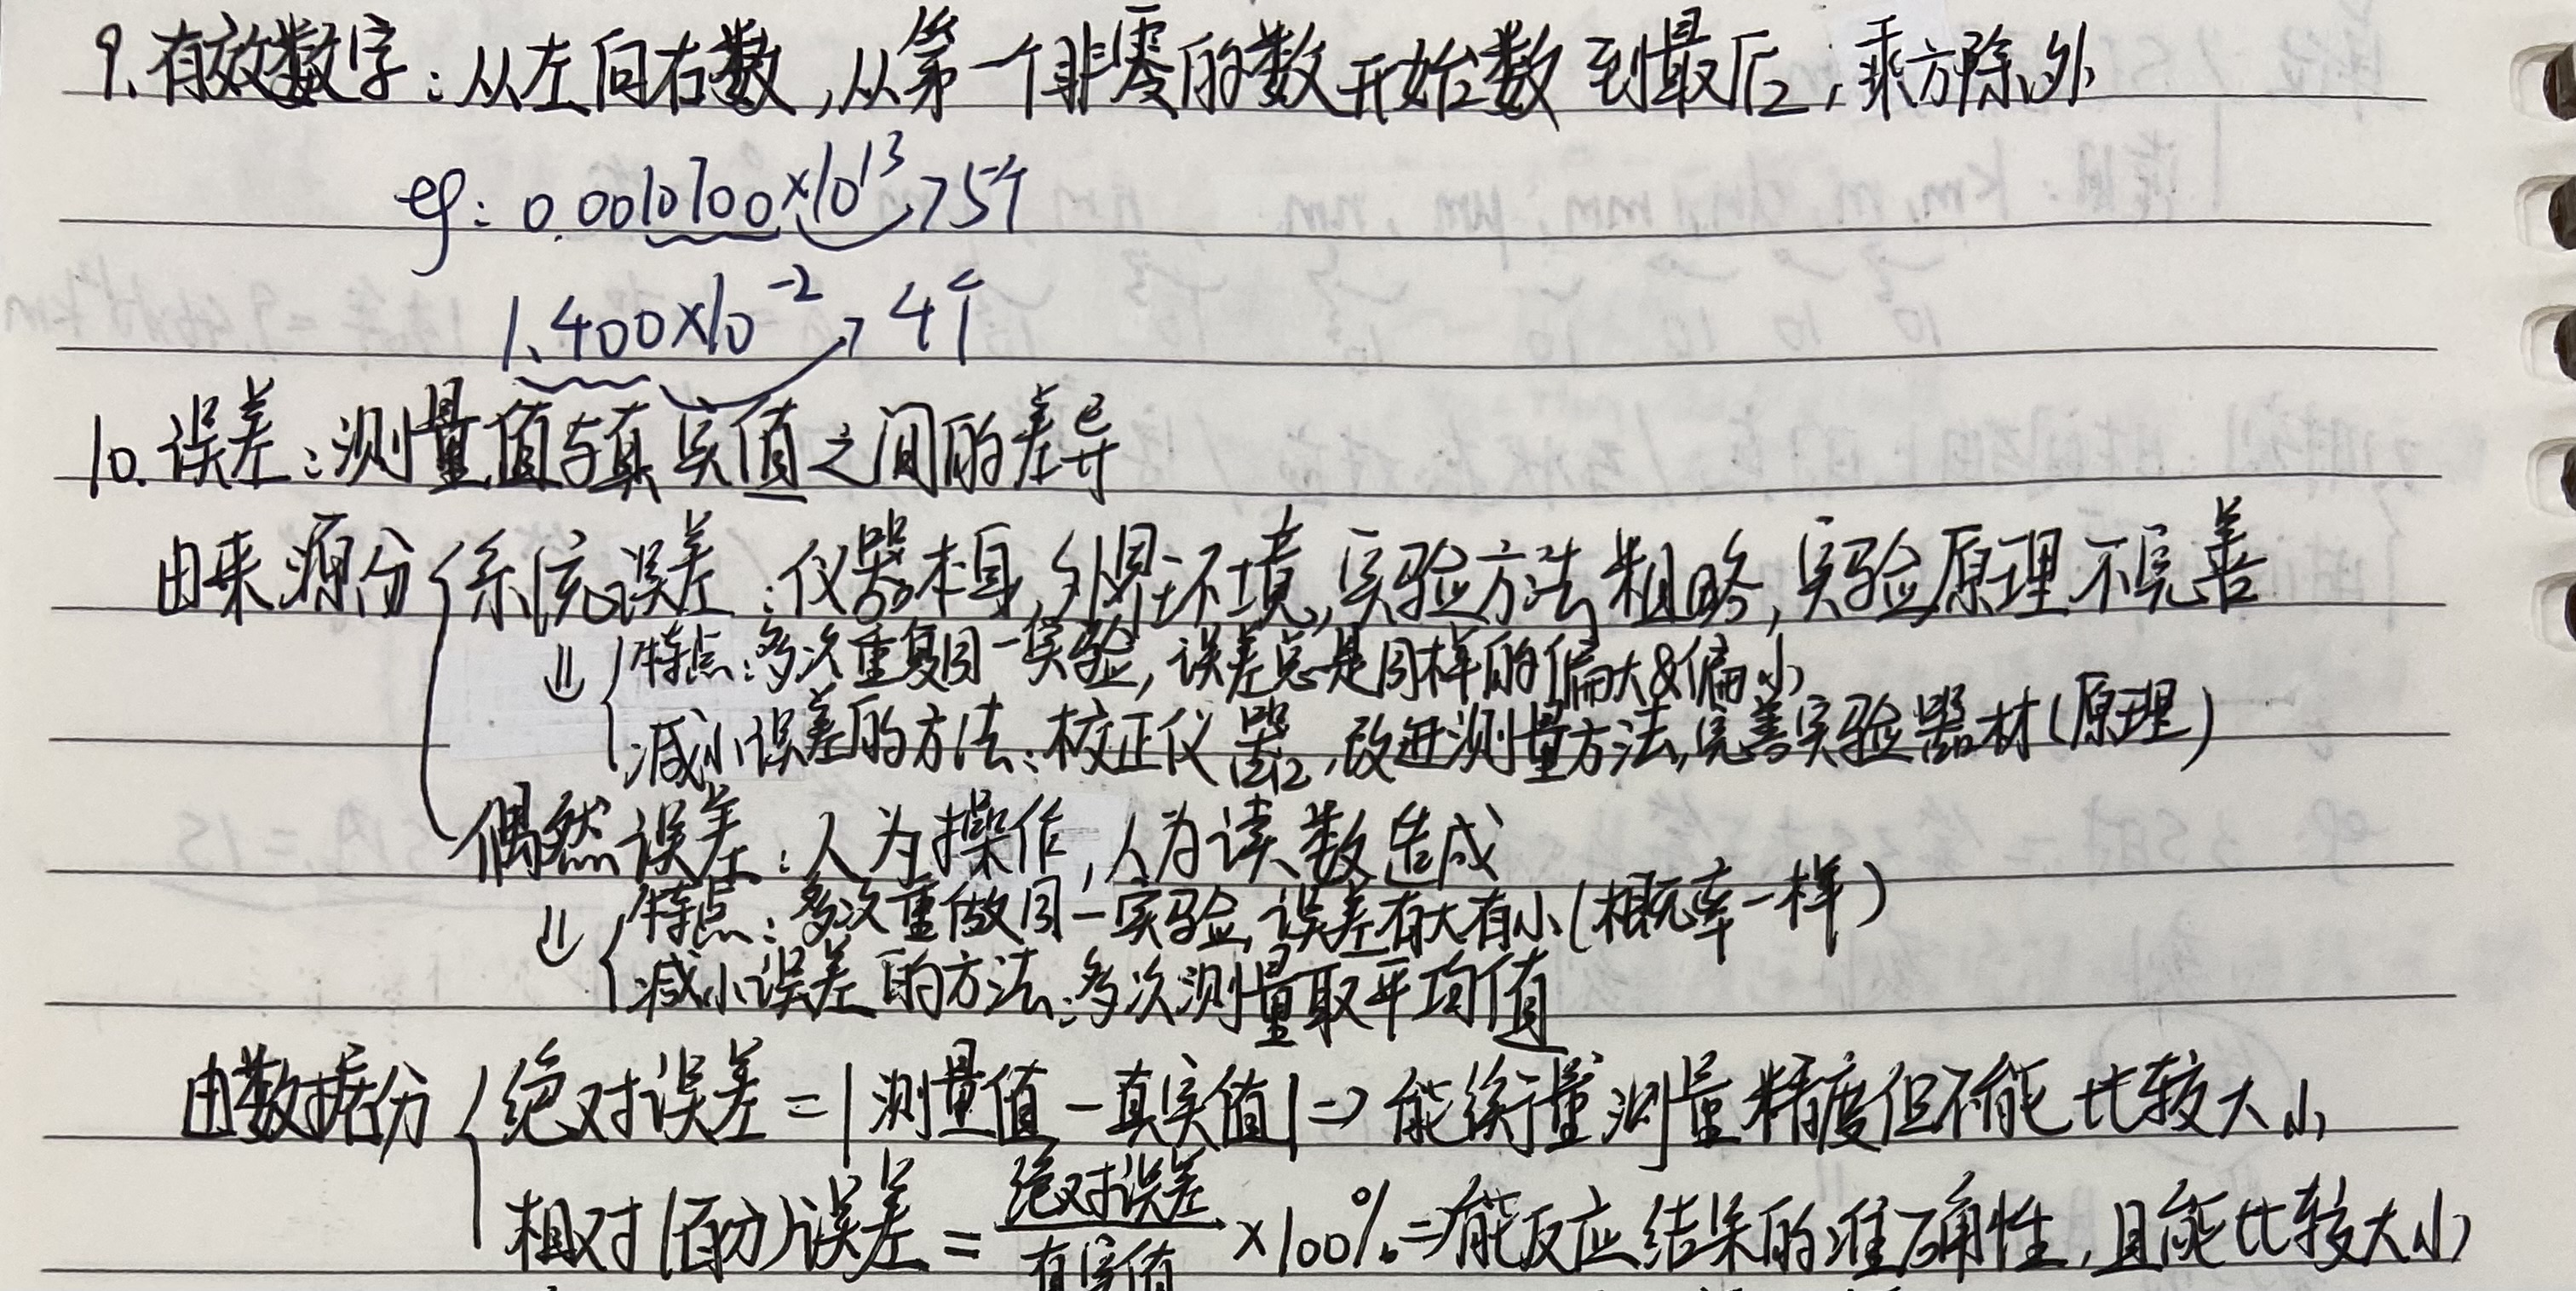 9.有效数字：从左向右数，从第一个非零的数开始数到最后，乘方除外
eg: 0.0010700×10¹³→5个
1.400×10⁻²→4个
10.误差：测量值与真实值之间的差异
由来源分{系统误差：仪器本身，外界环境，实验方法粗略，实验原理不完善
⇓{特点：多次重复同一实验，误差总是同样的偏大&偏小
减小误差的方法：校正仪器，改进测量方法，完善实验器材(原理)
偶然误差：人为操作，人为读数造成
⇓{特点：多次重做同一实验，误差有大有小(概率一样)
减小误差的方法：多次测量取平均值
由数据分{绝对误差=|测量值-真实值|⇒能衡量测量精度但不能比较大小
相对(百分)误差=绝对误差/真实值×100%⇒能反应结果的准确性，且能比较大小